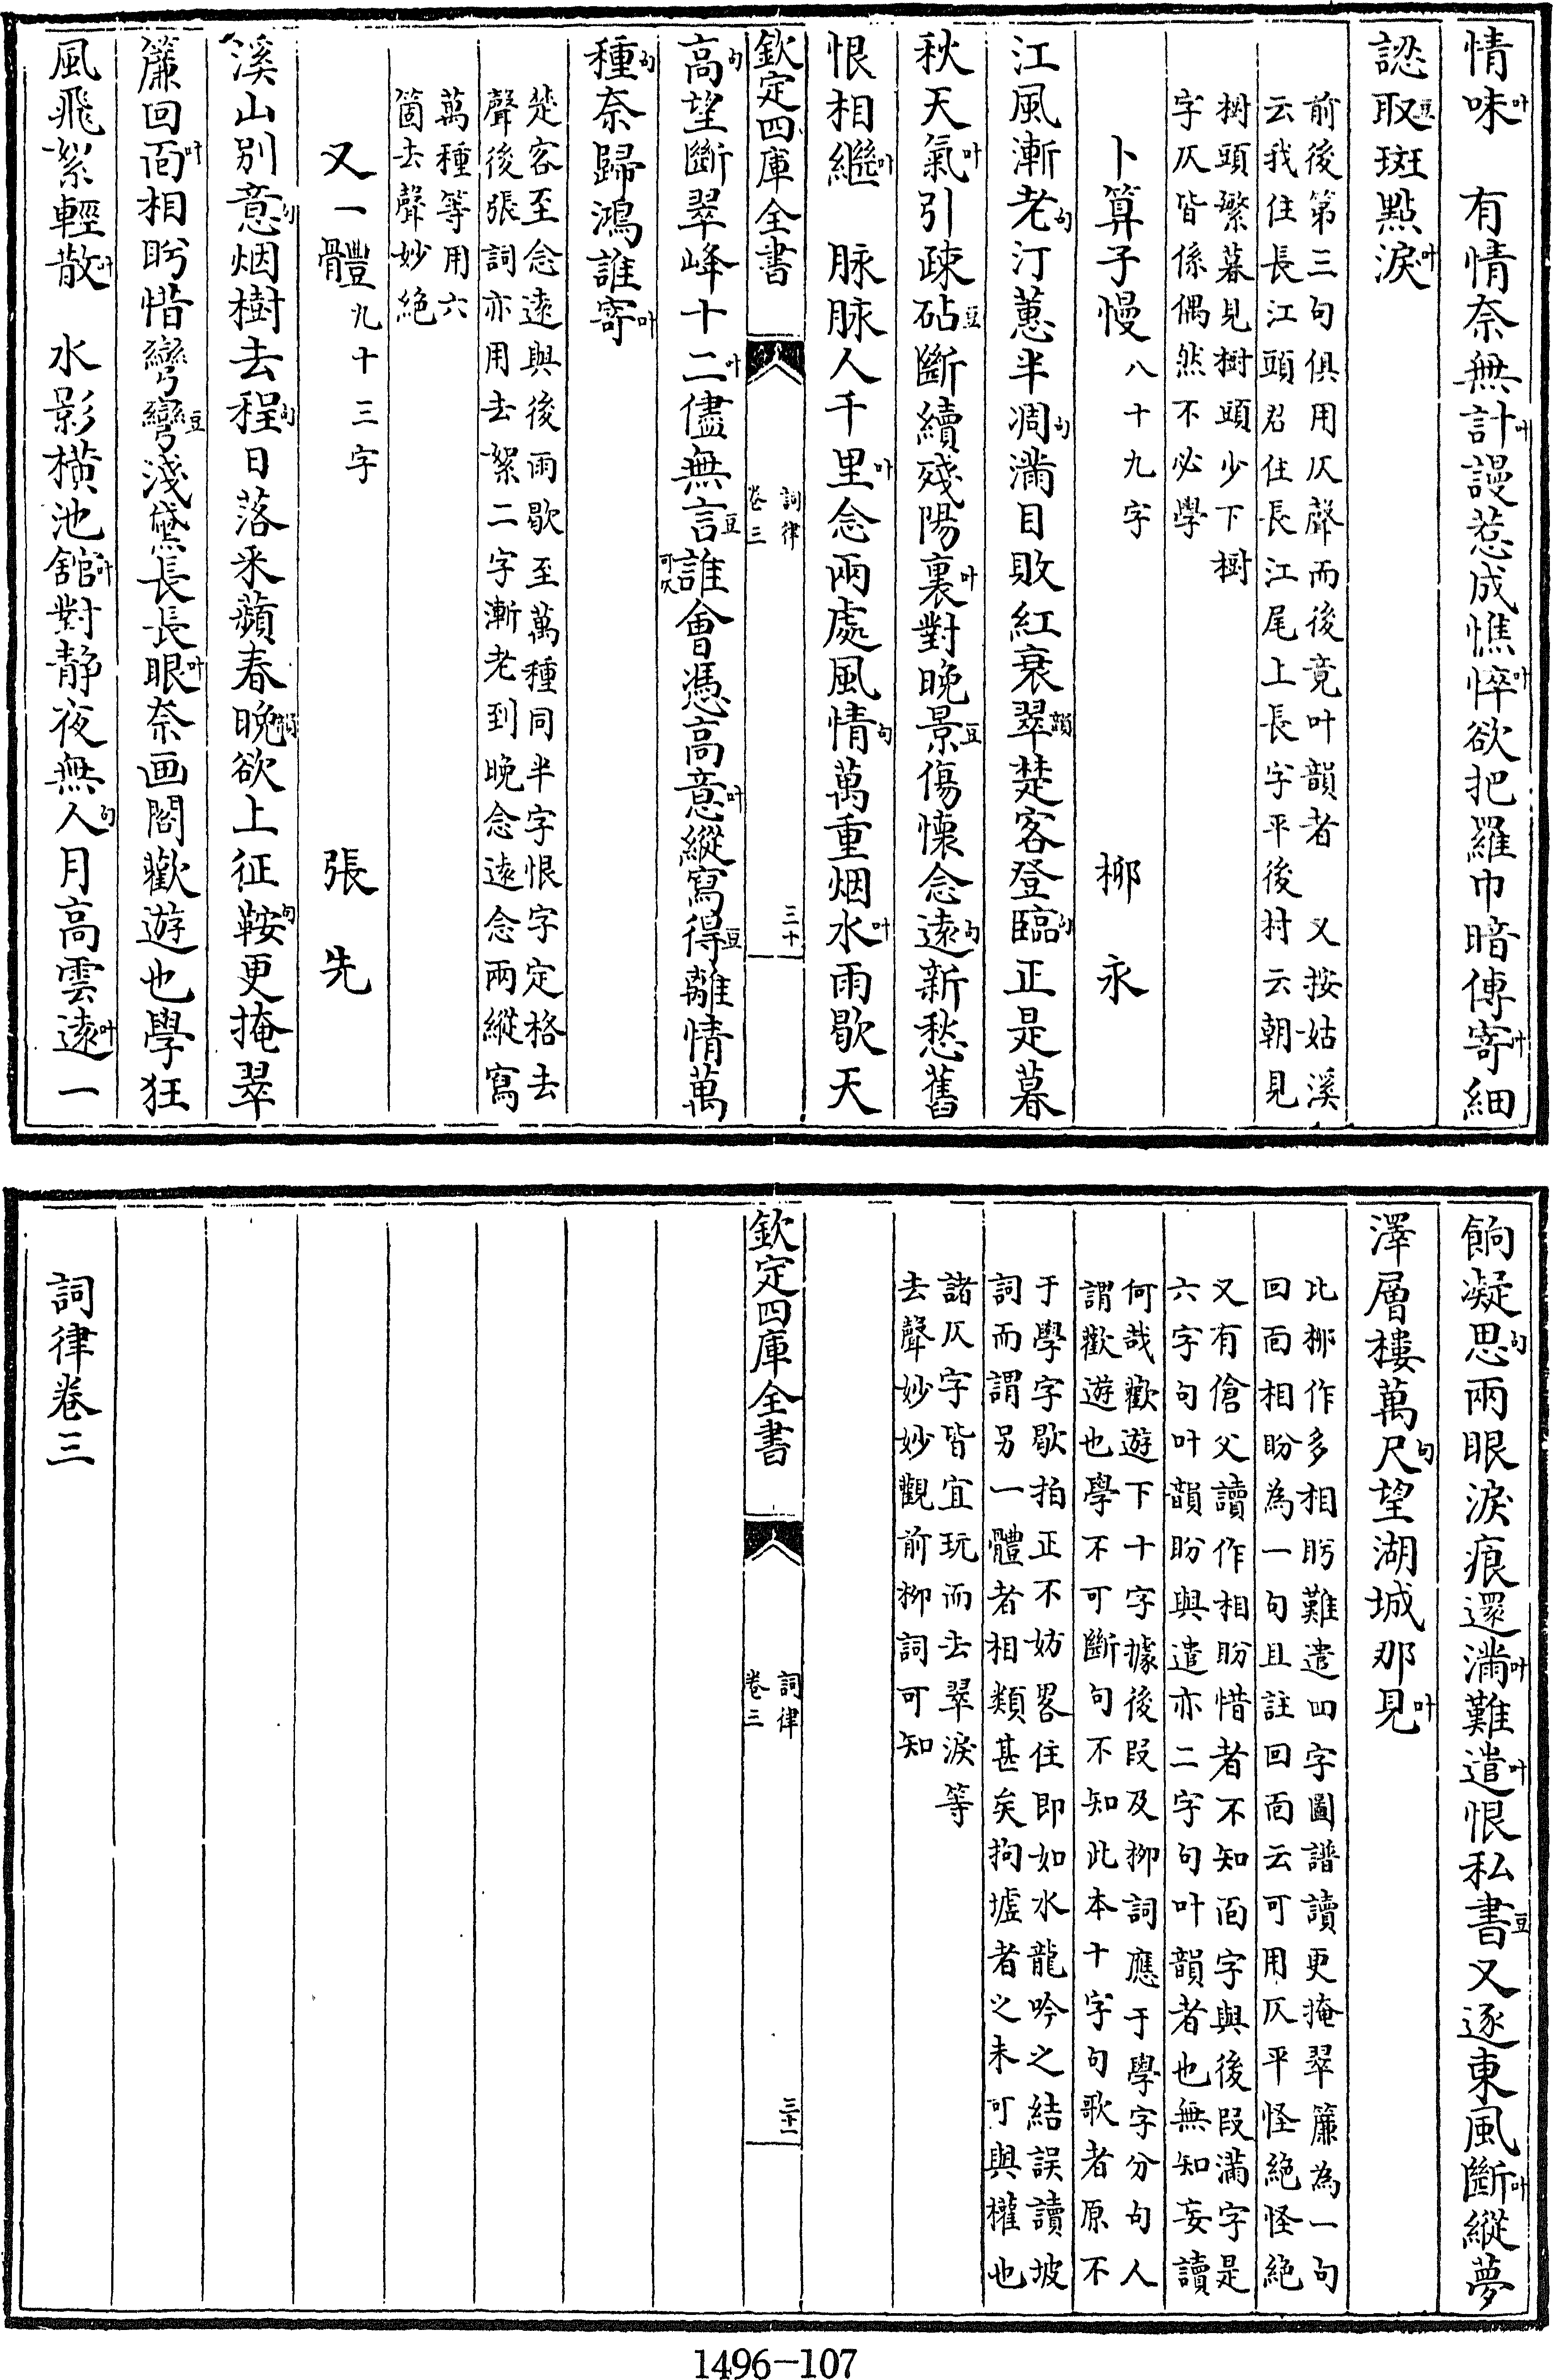 情味叶　有情奈無計叶謾惹成憔悴叶欲把羅巾暗傳寄叶細
認取豆斑點淚叶
前後第三句俱用仄聲而後竟叶韻者　又按姑溪
云我住長江頭君住長江尾上長字平後村云朝見
樹頭繁暮見樹頭少下樹
字仄皆係偶然不必學
卜算子慢八十九字　柳永
江風漸老句汀蕙半凋句滿目敗紅衰翠韻楚客登臨句正是暮
秋天氣叶引疎砧豆斷續殘陽裏叶對晚景豆傷懷念遠句新愁舊
恨相繼叶　脉脉人千里叶念兩處風情句萬重烟水叶雨歇天
欽定四庫全書　詞律卷三　三十
高句望斷翠峰十二叶儘無言豆誰可仄會憑高意叶縱寫得豆離情萬
種句奈歸鴻誰寄叶
楚客至念遠與後雨歇至萬種同半字恨字定格去
聲後張詞亦用去絮二字漸老到晚念遠念兩縱寫
萬種等用六
箇去聲妙絶
又一體九十三字　張先
溪山別意句烟樹去程句日落采蘋春晚韻欲上征鞍句更掩翠
簾回面叶相盻惜彎彎豆淺黛長長眼叶奈画閣歡遊也學狂
風飛絮輕散叶　水影橫池舘叶對靜夜無人句月高雲遠叶一
餉凝思句兩眼淚痕還滿叶難遣叶恨私書豆又逐東風斷叶縱夢
澤層樓萬尺句望湖城那見叶
比柳作多相盻難遣四字圖譜讀更掩翠簾為一句
回面相盼為一句且註回面云可用仄平怪絶怪絶
又有傖父讀作相盼惜者不知面字與後叚滿字是
六字句叶韻盼與遣亦二字句叶韻者也無知妄讀
何哉歡遊下十字據後叚及柳詞應于學字分句人
謂歡遊也學不可斷句不知此本十字句歌者原不
于學字歇拍正不妨畧住即如水龍吟之結誤讀坡
詞而謂另一體者相類甚矣拘墟者之未可與權也
諸仄字皆宜玩而去翠淚等
去聲妙妙觀前柳詞可知
欽定四庫全書　詞律卷三　三十一
詞律卷三
1496-107